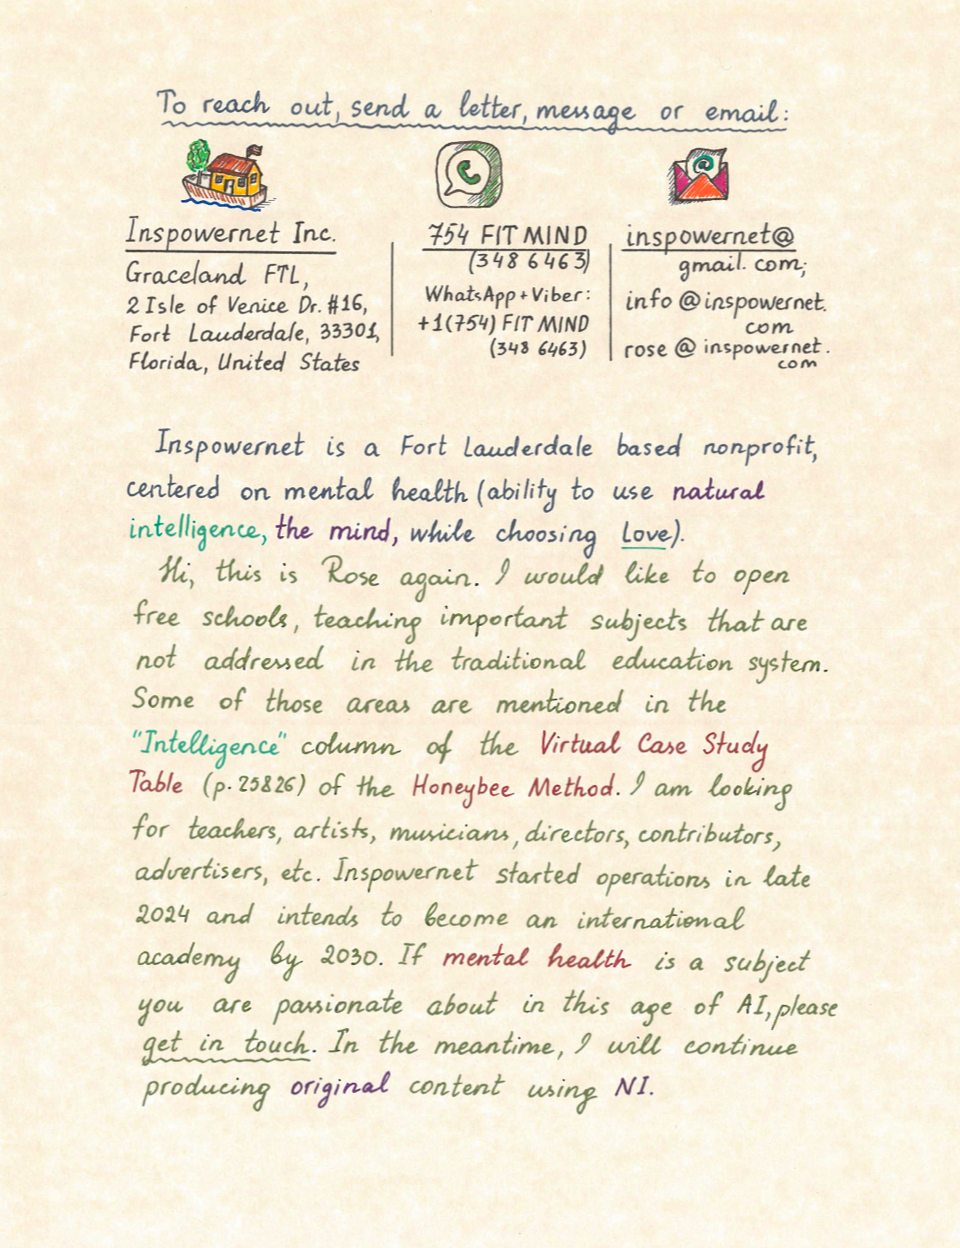 To reach out, send a letter, message or email:
Inspowernet Inc.
Graceland FTL,
2 Isle of Venice Dr. #16,
Fort Lauderdale, 33301,
Florida, United States
754 FIT MIND
(348 6463)
WhatsApp + Viber:
+1(754) FIT MIND
(348 6463)
inspowernet@
gmail.com;
info@inspowernet.
com
rose@inspowernet.
com
Inspowernet is a Fort Lauderdale based nonprofit,
centered on mental health (ability to use natural
intelligence, the mind, while choosing Love).
Hi, this is Rose again. I would like to open
free schools, teaching important subjects that are
not addressed in the traditional education system.
Some of those areas are mentioned in the
"Intelligence" column of the Virtual Case Study
Table (p. 25826) of the Honeybee Method. I am looking
for teachers, artists, musicians, directors, contributors,
advertisers, etc. Inspowernet started operations in late
2024 and intends to become an international
academy by 2030. If mental health is a subject
you are passionate about in this age of AI, please
get in touch. In the meantime, I will continue
producing original content using NI.